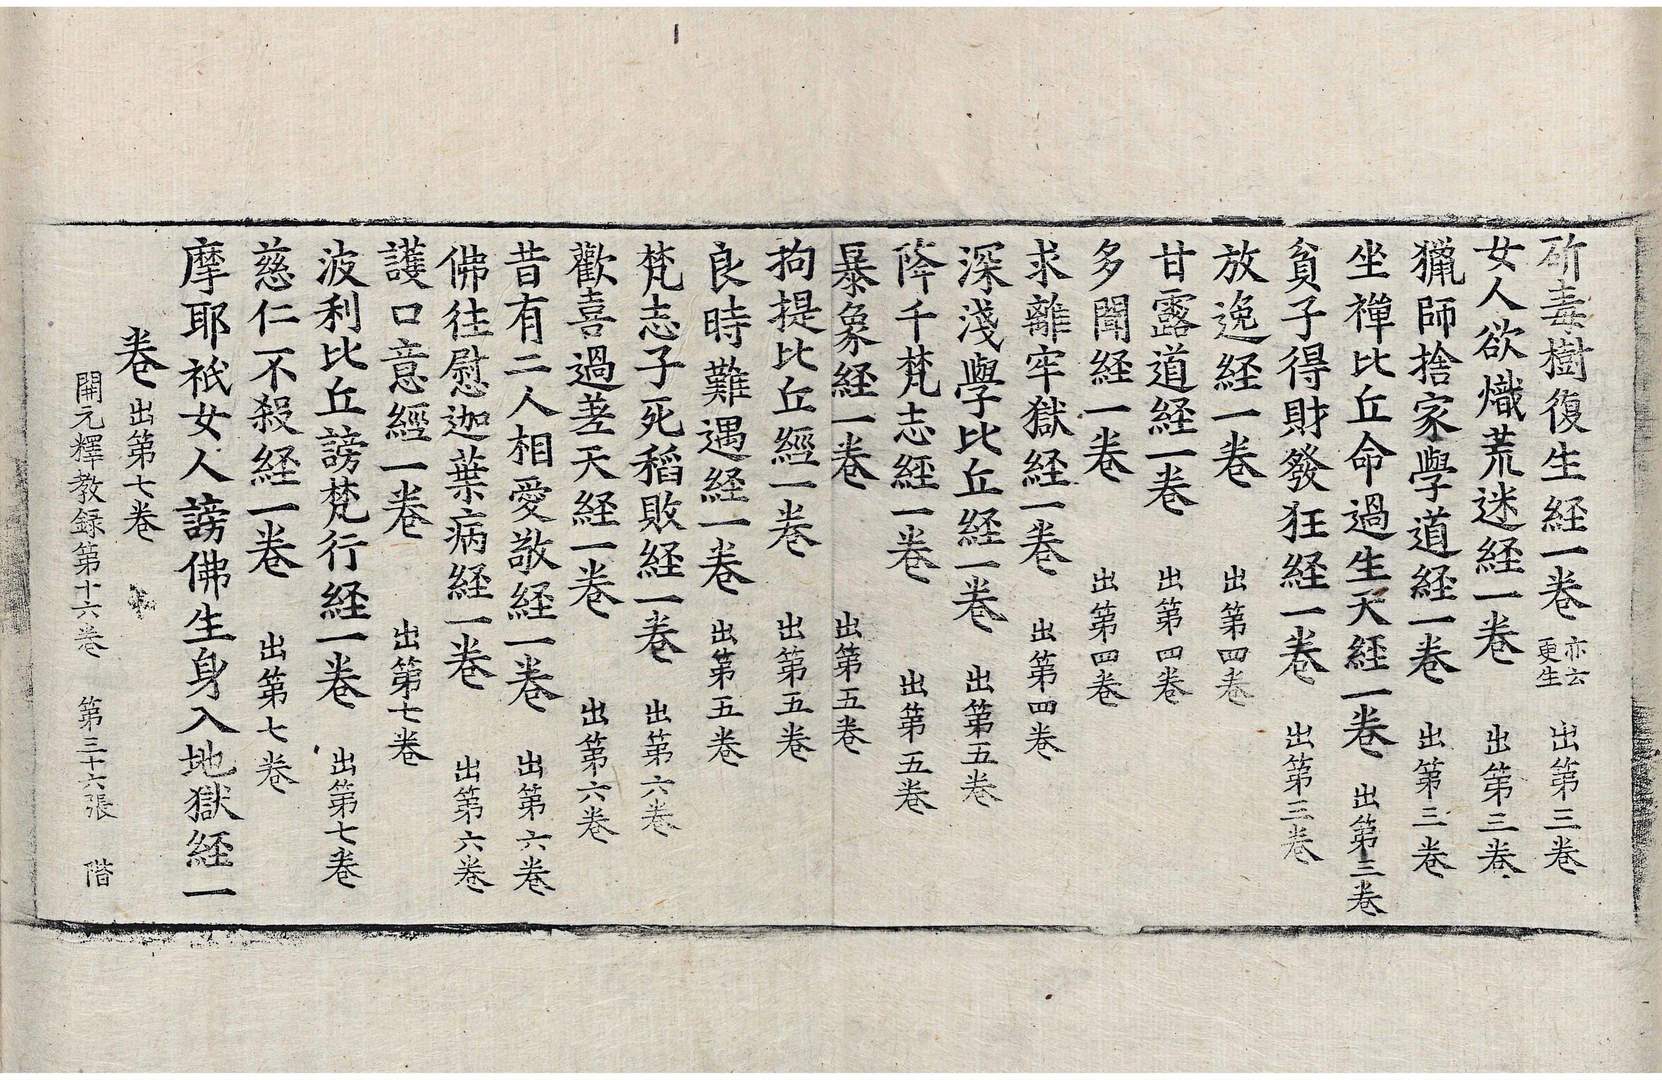 斫毒樹復生経一卷 亦云更生 出第三卷
女人欲熾荒迷経一卷 出第三卷
獵師捨家學道経一卷 出第三卷
坐禪比丘命過生天経一卷 出第三卷
貧子得財發狂経一卷 出第三卷
放逸経一卷 出第四卷
甘露道経一卷 出第四卷
多聞経一卷 出第四卷
求離牢獄経一卷 出第四卷
深淺學比丘経一卷 出第五卷
降千梵志経一卷 出第五卷
暴象経一卷 出第五卷
拘提比丘經一卷 出第五卷
良時難遇経一卷 出第五卷
梵志子死稻敗経一卷 出第六卷
歡喜過差天経一卷 出第六卷
昔有二人相愛敬経一卷 出第六卷
佛往慰迦葉病経一卷 出第六卷
護口意經一卷 出第七卷
波利比丘謗梵行経一卷 出第七卷
慈仁不殺経一卷 出第七卷
摩耶祇女人謗佛生身入地獄経一
卷 出第七卷
開元釋教録第十六卷 第三十六張 階